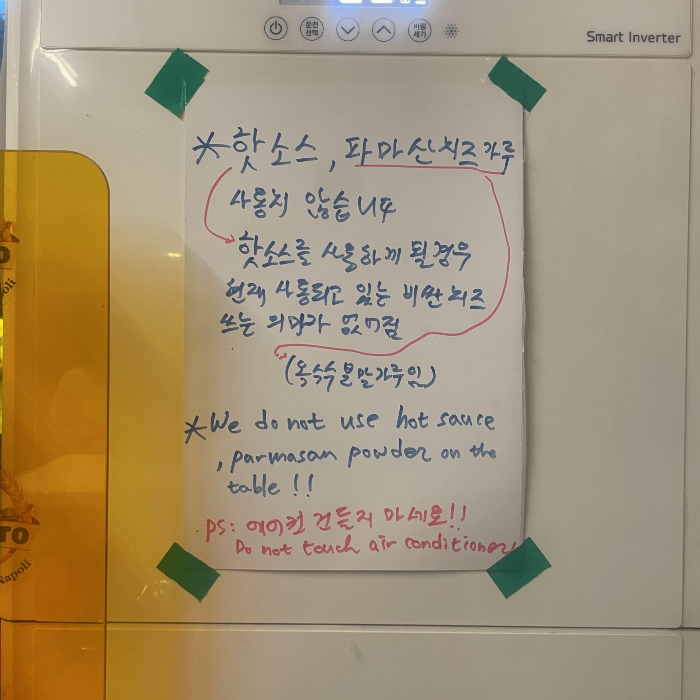 운전
선택
바람
세기
Smart Inverter
*핫소스, 파마산치즈가루
사용치 않습니다
핫소스를 사용하게 될경우
현재 사용되고 있는 비싼치즈
쓰는 의미가 없어짐
(옥수수분말가루임)
*We do not use hot sauce
, parmasan powder on the
table !!
PS: 에어컨 건들지 마세요!!
Do not touch air conditioner!
TO
Napoli